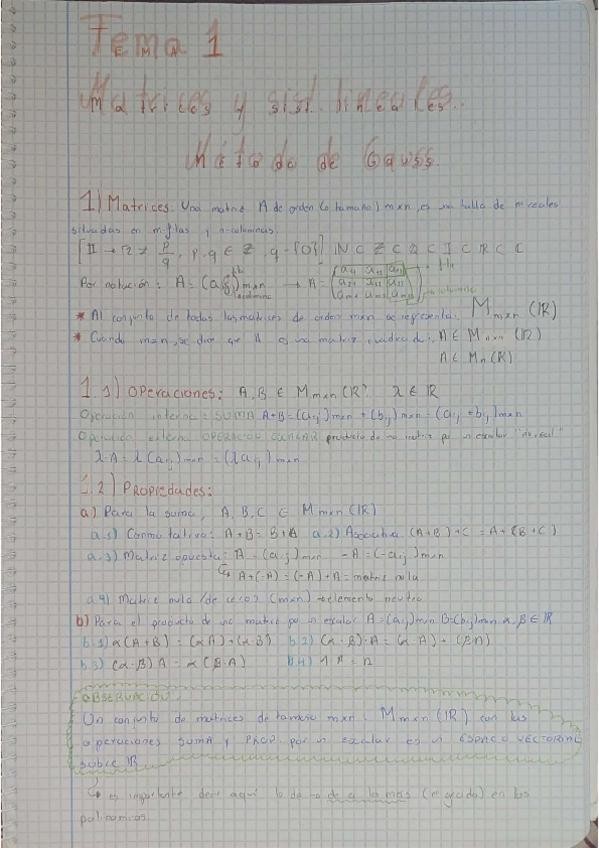 Tema 1
Matrices y sist. lineales.
Método de Gauss.
1) Matrices: Una matriz A de orden (o tamaño) mxn, es una tabla de reales
situadas en m-filas y n-columnas.
[II → r ≠ p/q, p, q ∈ Z, q - {0}] N ⊂ Z ⊂ Q ⊂ I ⊂ R ⊂ C
Por notación: A = (aij)mxn → A =
* Al conjunto de todas las matrices de orden mxn se representa: Mmxn (IR)
* Cuando m=n, se dice que A es una matriz cuadrada: A ∈ Mnxn (IR)
A ∈ Mn (IR)
1.1) Operaciones: A, B ∈ Mmxn (IR) λ ∈ IR
Operación interna: SUMA A+B = (aij)mxn + (bij)mxn = (aij + bij)mxn
Operación externa OPERACIÓN ESCALAR producto de una matriz por un escalar "nº real"
λ·A = λ(aij)mxn = (λaij)mxn
1.2) Propiedades:
a) Para la suma, A, B, C ∈ Mmxn (IR)
a.1) Conmutativa: A+B = B+A a.2) Asociativa (A+B)+C = A+(B+C)
a.3) Matriz opuesta: A = (aij)mxn -A = (-aij)mxn
A+(-A) = (-A)+A = matriz nula
a.4) Matriz nula (de ceros) (mxn) → elemento neutro
b) Para el producto de una matriz por un escalar A=(aij)mxn B=(bij)mxn α, β ∈ IR
b.1) α(A+B) = (αA)+(αB) b.2) (α·β)·A = (α·A)+(βA)
b.3) (α·β)A = α(β·A) b.4) 1·A = A
OBSERVACIÓN:
Un conjunto de matrices de tamaño mxn: Mmxn (IR) con las
operaciones SUMA y PROD. por un escalar es un ESPACIO VECTORIAL
sobre IR
es importante decir aquí lo de de a lo más (el grado) en los
polinomios.